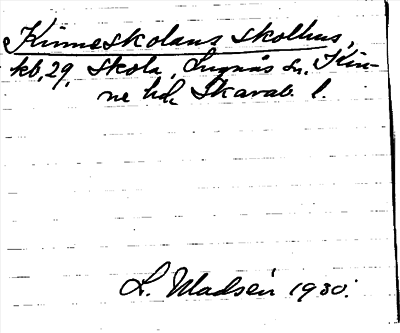 Kinneskolans skolhus,
kb, 29, Skola, Lugnås sn. Kin-
ne hd. Skarab. l.
L. Madsén 1930.